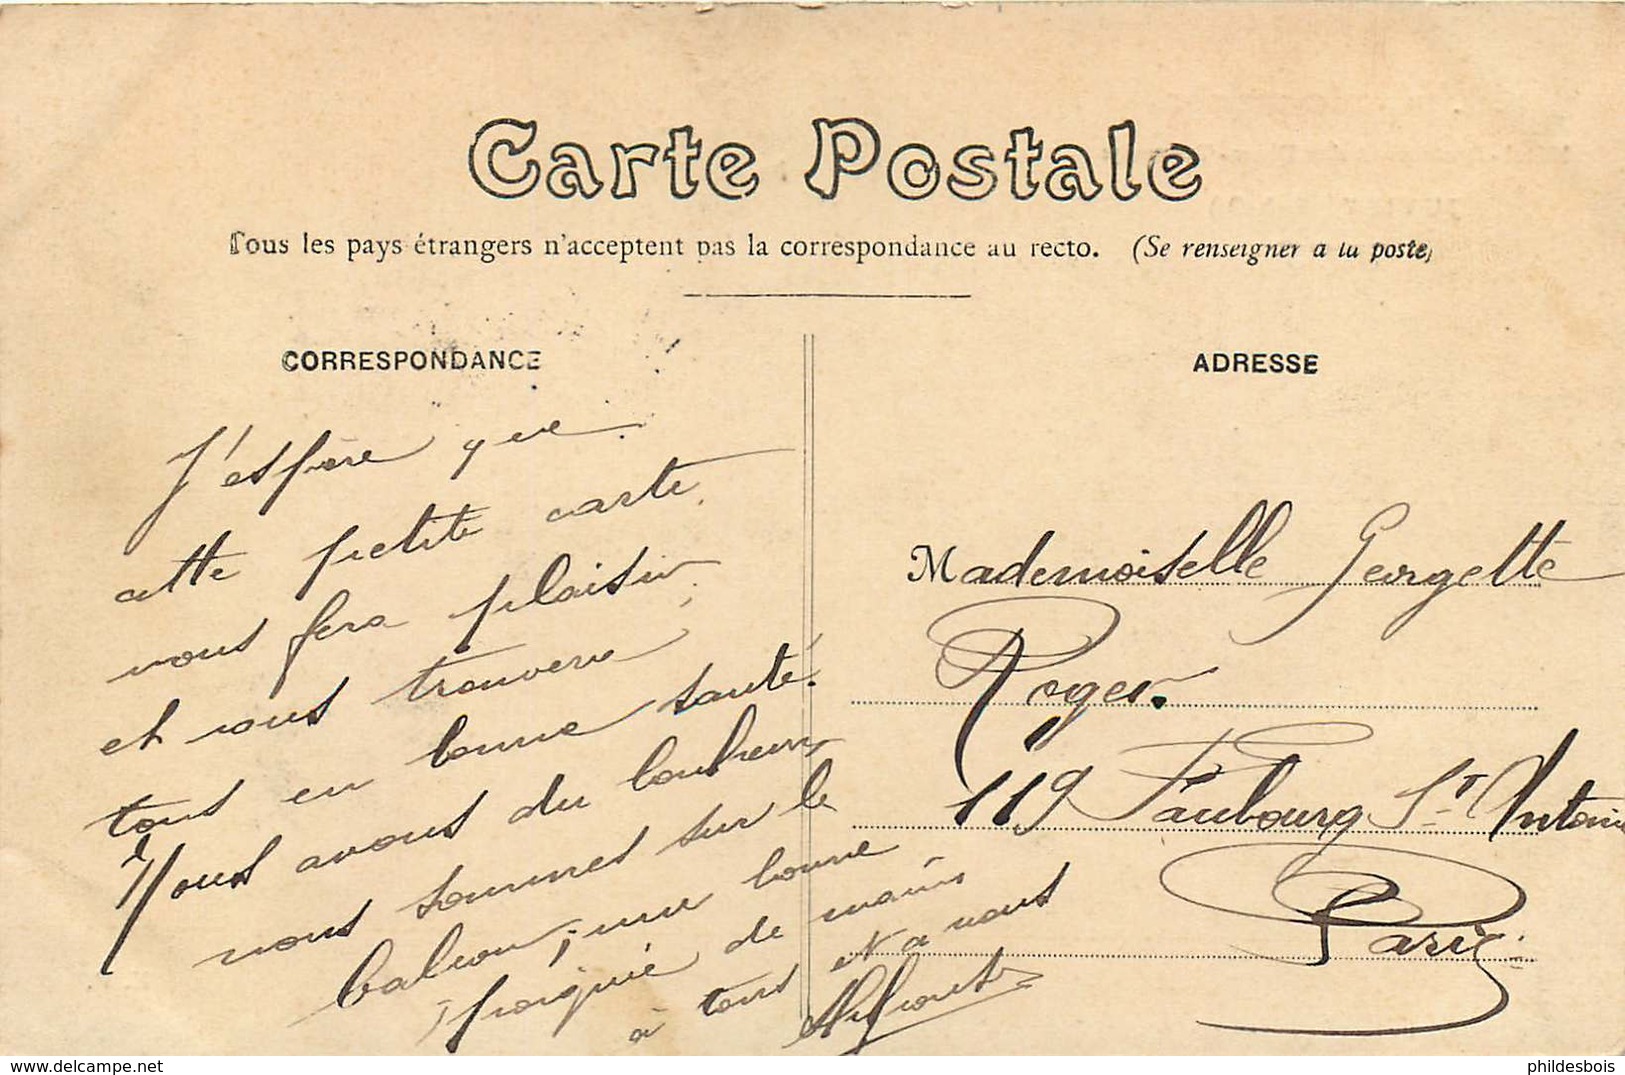 Carte Postale
Tous les pays étrangers n'acceptent pas la correspondance au recto. (Se renseigner a la poste)
CORRESPONDANCE
J'espère que
cette petite carte
vous fera plaisir
et vous trouvera
tous en bonne santé.
Nous avons du bonheur,
nous sommes sur le
balcon, une bonne
poignée de mains
à tous et a vous
ADRESSE
Mademoiselle Georgette
Roger.
119 Faubourg St Antoine
Paris
www.delcampe.net
phildesbois